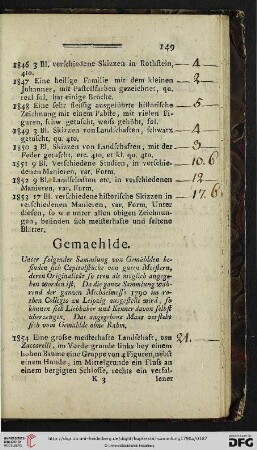 149
1846 3 Bl. verschiedene Skizzen in Rothstein, 4
4to.
1847 Eine heilige Familie mit dem kleinen 2
Johannes, mit Pastellfarben gezeichnet, qu.
real fol. hat einige Brüche.
1848 Eine sehr fleissig ausgeführte historische 5
Zeichnung mit einem Pabste, mit vielen Fi-
guren, getuscht, weiss gehöht, fol.
1849 3 Bl. Skizzen von Landschaften, schwarz 4
getuscht, qu. 4to.
1850 3 Bl. Skizzen von Landschaften, mit der
Feder getuscht, etc. 4to. et kl. qu. 4to.
9 Bl. Verschiedene Studien, in verschie- 10.6
denen Manieren, var. Form.
1852 9 Bl. Landschaften etc. in verschiedenen
Manieren, var. Form.
1853 17 Bl. verschiedene historische Skizzen in 17.6
verschiedenen Manieren, var. Form. Unter
diesen, so wie unter allen obigen Zeichnun-
gen, befinden sich meisterhafte und seltene
Blätter.
Gemaehlde.
Unter folgender Sammlung von Gemählden be-
finden sich Capitalstücke von guten Meistern,
deren Originalität so treu als möglich angege-
ben worden ist. Da die ganze Sammlung wäh-
rend der ganzen Michaelmess 1790 im ro-
then Collegio zu Leipzig ausgestellt wird, so
können sich Liebhaber und Kenner davon selbst
überzeugen. Das angegebene Maas versteht
sich vom Gemählde ohne Rahm.
1854 Eine grosse meisterhafte Landschaft, von 21.
Zuccarelli, im Vordergrunde linker Hand einem
hohen Baume eine Gruppe von 4 Figuren, nebst
einem Hunde, im Mittelgrunde ein Fluss an
einem bergigten Schlosse, rechts ein verfal-
K 3 lener
http://digi.ub.uni-heidelberg.de/diglit/
Universitätsbibliothek Heidelberg
gefördert durch die
DFG